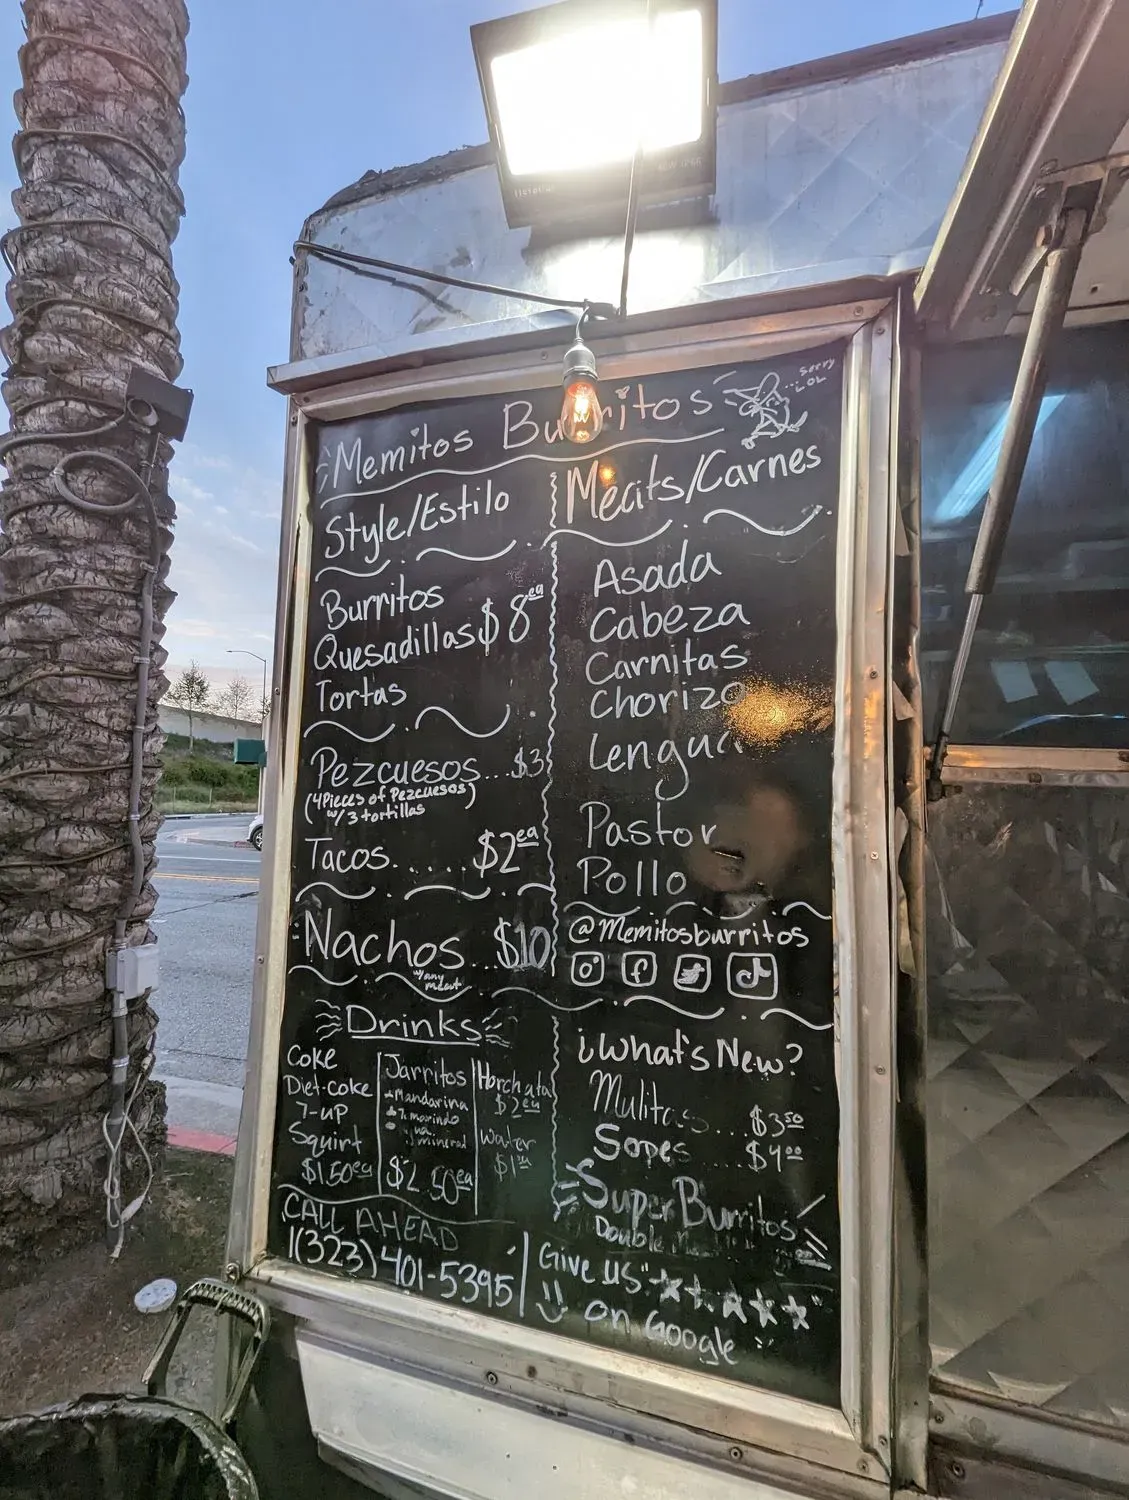 ¡Memitos Burritos
sorry
LOL
Style/Estilo
Burritos
Quesadillas $8 ea
Tortas
Pezcuesos...$3
(4 Pieces of Pezcuesos)
w/3 tortillas
Tacos..... $2 ea
Nachos...$10
w/any
meat
Meats/Carnes
Asada
Cabeza
Carnitas
Chorizo
Lengua
Pastor
Pollo
@Memitosburritos
Drinks
Coke
Diet-Coke
7-UP
Squirt
$1.50 ea
Jarritos
Mandarina
mineral
$2.50 ea
Horchata
$2 ea
Water
$1
CALL AHEAD
1(323)401-5395
¡What's New?
Mulitas...$3.50
Sopes....$4.00
Super Burritos
Double
Give us
on Google